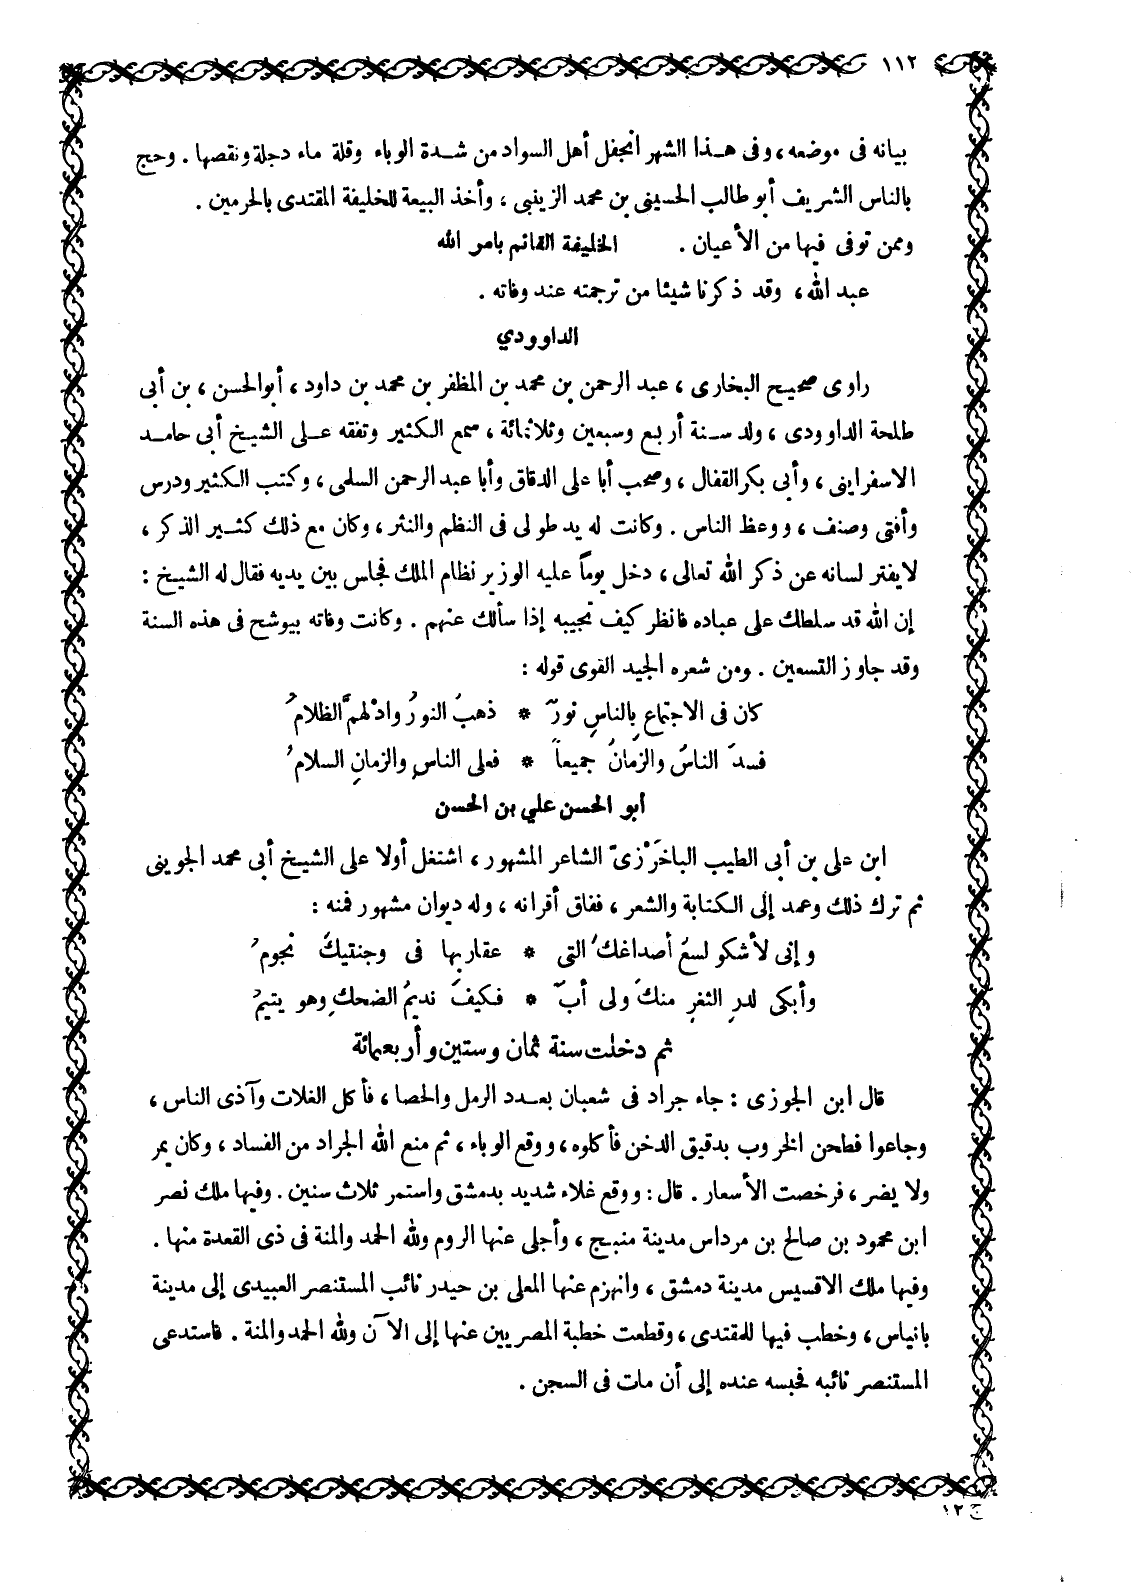 ١١٢
بيانه فى موضعه، وفى هـذا الشهر انجفل أهل السواد من شدة الوباء وقلة ماء دجلة ونقصها . وحج
بالناس الشريف أبو طالب الحسينى بن محمد الزينبى ، وأخذ البيعة للخليفة المقتدى بالحرمين .
وممن توفى فيها من الأعيان . الخليفة القائم بامر الله
عبد الله، وقد ذكرنا شيئا من ترجمته عند وفاته .
الداوودي
راوى صحيح البخارى ، عبد الرحمن بن محمد بن المظفر بن محمد بن داود ، أبو الحسن ، بن أبى
طلحة الداوودى ، ولد سـنة أربع وسبعين وثلاثمائة ، سمع الكثير وتفقه عـلى الشيخ أبى حامـد
الاسفراينى ، وأبى بكر القفال ، وصحب أبا على الدقاق وأبا عبد الرحمن السلمى ، وكتب الكثير ودرس
وأفتى وصنف ، ووعظ الناس . وكانت له يد طولى فى النظم والنثر ، وكان مع ذلك كثـير الذكر ،
لا يفتر لسانه عن ذكر الله تعالى ، دخل يوماً عليه الوزير نظام الملك فجلس بين يديه فقال له الشيخ :
إن الله قد سلطك على عباده فانظر كيف تجيبه إذا سألك عنهم . وكانت وفاته ببوشح فى هذه السنة
وقد جاوز التسعين . ومن شعره الجيد القوى قوله :
كان فى الاجتماع بالناسِ نورٌ * ذهبَ النورُ وادْلهمَّ الظلامُ
فسدَ الناسُ والزمانُ جميعاً * فعلى الناسِ والزمانِ السلامُ
أبو الحسن علي بن الحسن
ابن على بن أبى الطيب الباخَرْزىّ الشاعر المشهور ، اشتغل أولا على الشيخ أبى محمد الجوينى
ثم ترك ذلك وعمد إلى الكتابة والشعر ، ففاق أقرانه ، وله ديوان مشهور فمنه :
وإنى لأشكو لسعَ أصداغكَ التى * عقاربها فى وجنتيكَ نجومُ
وأبكى لدرِ الثغرِ منكَ ولى أبٌ * فكيفَ نديمُ الضحكِ وهو يتيمُ
ثم دخلت سنة ثمان وستين وأربعمائة
قال ابن الجوزى : جاء جراد فى شعبان بعـدد الرمل والحصا ، فأكل الغلات وآذى الناس ،
وجاعوا فطحن الخروب بدقيق الدخن فأكلوه ، ووقع الوباء ، ثم منع الله الجراد من الفساد ، وكان يمر
ولا يضر ، فرخصت الأسعار . قال : ووقع غلاء شديد بدمشق واستمر ثلاث سنين . وفيها ملك نصر
ابن محمود بن صالح بن مرداس مدينة منبج ، وأجلى عنها الروم ولله الحمد والمنة فى ذى القعدة منها .
وفيها ملك الاقسيس مدينة دمشق ، وانهزم عنها المعلى بن حيدر نائب المستنصر العبيدى إلى مدينة
بانياس ، وخطب فيها للمقتدى ، وقطعت خطبة المصريين عنها إلى الآن ولله الحمد والمنة . فاستدعى
المستنصر نائبه فحبسه عنده إلى أن مات فى السجن .
ج ١٢